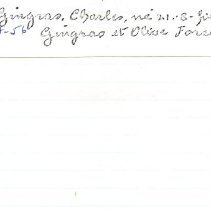 Gingras, Charles, né 21.-8-
-56 Gingras et Olive